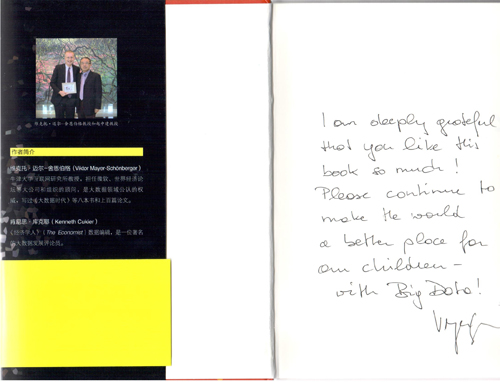 作者简介
维克托·迈尔-舍恩伯格（Viktor Mayor-Schönberger）
肯尼思·库克耶（Kenneth Cukier）
《经济学人》（The Economist）数据编辑，是一位著名
的大数据发展评论员。
I am deeply grateful
that you like this
book so much!
Please continue to
make the world
a better place for
our children –
with Big Data!